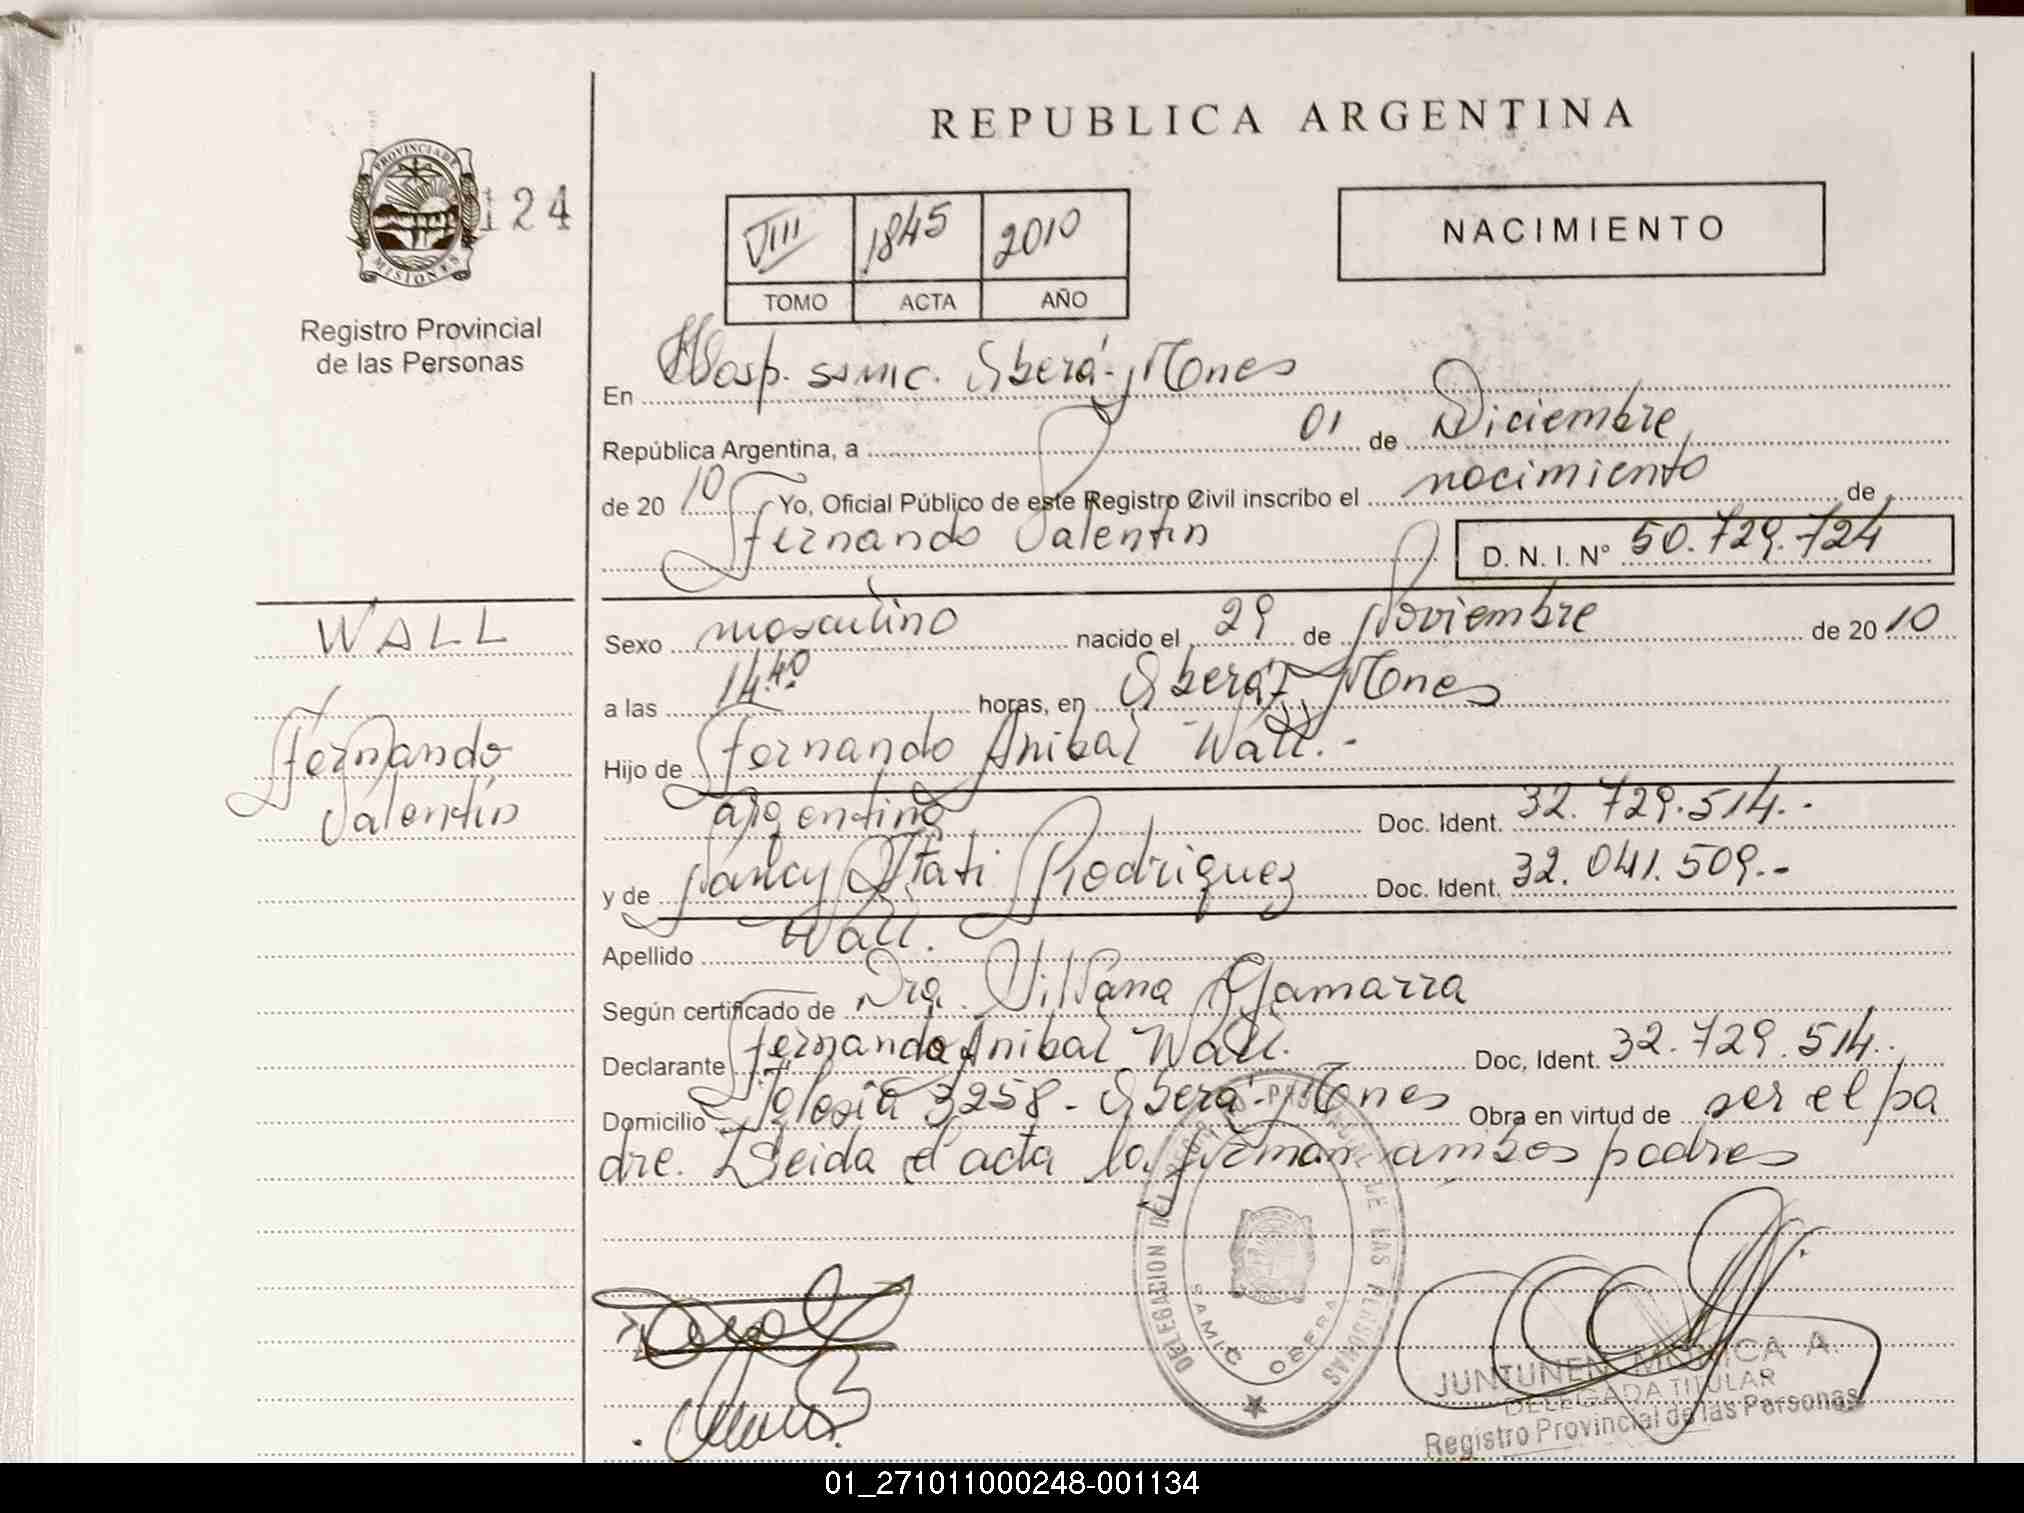 REPUBLICA ARGENTINA
PROVINCIA DE MISIONES
124
Registro Provincial
de las Personas
VIII 1845 2010
TOMO ACTA AÑO
NACIMIENTO
En Hosp. samic. Oberá-Mnes
República Argentina, a 01 de Diciembre
de 2010 Yo, Oficial Público de este Registro Civil inscribo el nacimiento de
Fernando Valentin D. N. I. N° 50.729.724
WALL
Fernando
Valentín
Sexo masculino nacido el 29 de Noviembre de 2010
a las 14.40 horas, en Oberá, Mnes
Hijo de Fernando Anibal Wall.-
argentino Doc. Ident. 32.729.514.-
y de Nancy Itati Rodriguez Doc. Ident. 32.041.509.-
Apellido Wall.
Según certificado de Dra. Silvana Gamarra
Declarante Fernando Anibal Wall. Doc, Ident. 32.729.514.
Domicilio Iglesia 3258 - Oberá-Mnes Obra en virtud de ser el pa
dre. Leida el acta la firman ambos padres
DELEGACION DEL REGISTRO PROVINCIAL DE LAS PERSONAS
SAMIC OBERA
JUNTUNEN MONICA A.
DELEGADA TITULAR
Registro Provincial de las Personas
01_271011000248-001134